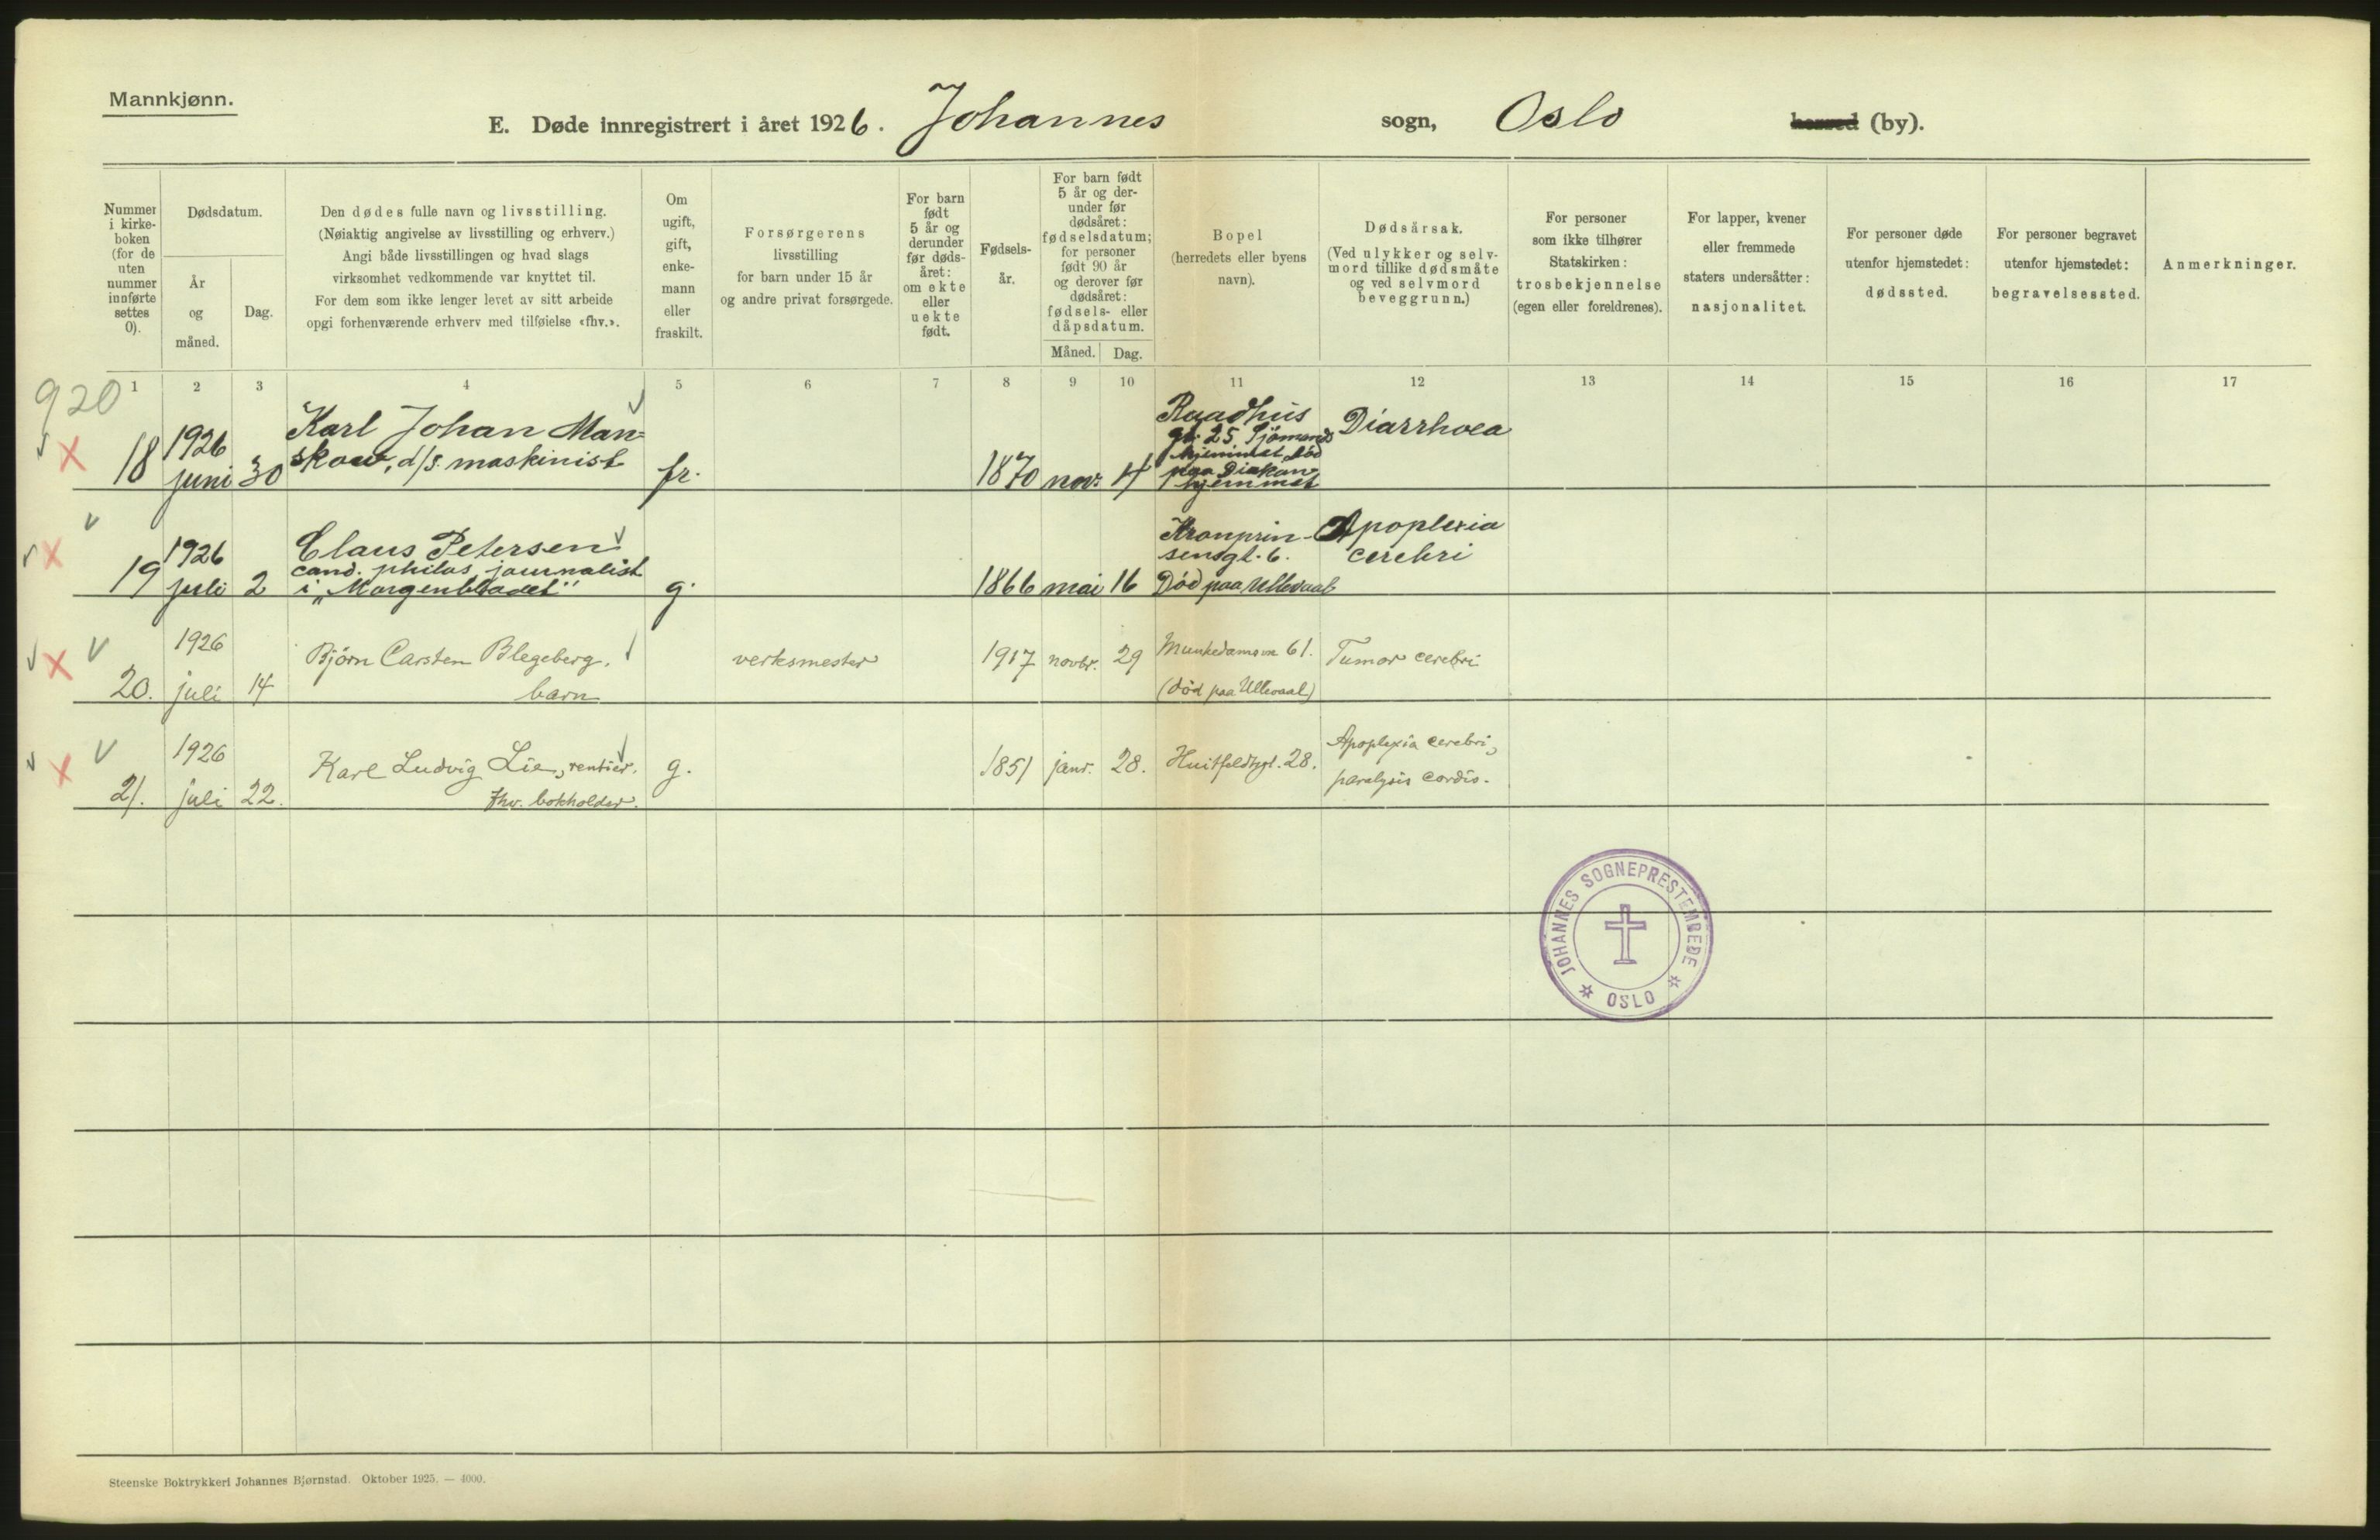 Mannkjønn.
E. Døde innregistrert i året 1926. Johannes sogn, Oslo herred (by).
Nummer i kirke-boken (for de uten nummer innførte settes 0).
Dødsdatum.
År og måned.
Dag.
Den dødes fulle navn og livsstilling.
(Nøiaktig angivelse av livsstilling og erhverv.)
Angi både livsstillingen og hvad slags
virksomhet vedkommende var knyttet til.
For dem som ikke lenger levet av sitt arbeide
opgi forhenværende erhverv med tilføielse «fhv.».
Om
ugift,
gift,
enke-
mann
eller
fraskilt.
Forsørgerens
livsstilling
for barn under 15 år
og andre privat forsørgede.
For barn
født
5 år og
derunder
før døds-
året:
om ekte
eller
uekte
født.
Fødsels-
år.
For barn født
5 år og der-
under før
dødsåret:
fødselsdatum;
for personer
født 90 år
og derover før
dødsåret:
fødsels- eller
dåpsdatum.
Måned. Dag.
Bopel
(herredets eller byens
navn).
Dødsårsak.
(Ved ulykker og selv-
mord tillike dødsmåte
og ved selvmord
beveggrunn.)
For personer
som ikke tilhører
Statskirken:
trosbekjennelse
(egen eller foreldrenes).
For lapper, kvener
eller fremmede
staters undersåtter:
nasjonalitet.
For personer døde
utenfor hjemstedet:
dødssted.
For personer begravet
utenfor hjemstedet:
begravelsessted.
Anmerkninger.
1 2 3 4 5 6 7 8 9 10 11 12 13 14 15 16 17
920
18 1926 juni 30
Karl Johan Man=
skow, d/s. maskinist
fr.
1870 nov. 4
Raadhus
gt. 25 Sjömands
hjemmet Död
paa Diakon-
hjemmet
Diarrhoea
19 1926 juli 2
Claus Petersen
cand. philos journalist
i „Morgenbladet"
g.
1866 mai 16
Kronprin-
sensgt. 6.
Död paa Ullevaal
Apoplexia
cerebri
20. 1926 juli 14
Björn Carsten Blegeberg.
barn
verksmester
1917 novbr. 29
Munkedamsvn 61.
(död paa Ullevaal)
Tumor cerebri
21. 1926 juli 22.
Karl Ludvig Lie, rentier.
fhv. bokholder.
g.
1851 janr. 28.
Huitfeldtsgt. 28.
Apoplexia cerebri,
paralysis cordis.
JOHANNES SOGNEPRESTEMBEDE
OSLO
Steenske Boktrykkeri Johannes Bjørnstad. Oktober 1925. — 4000.